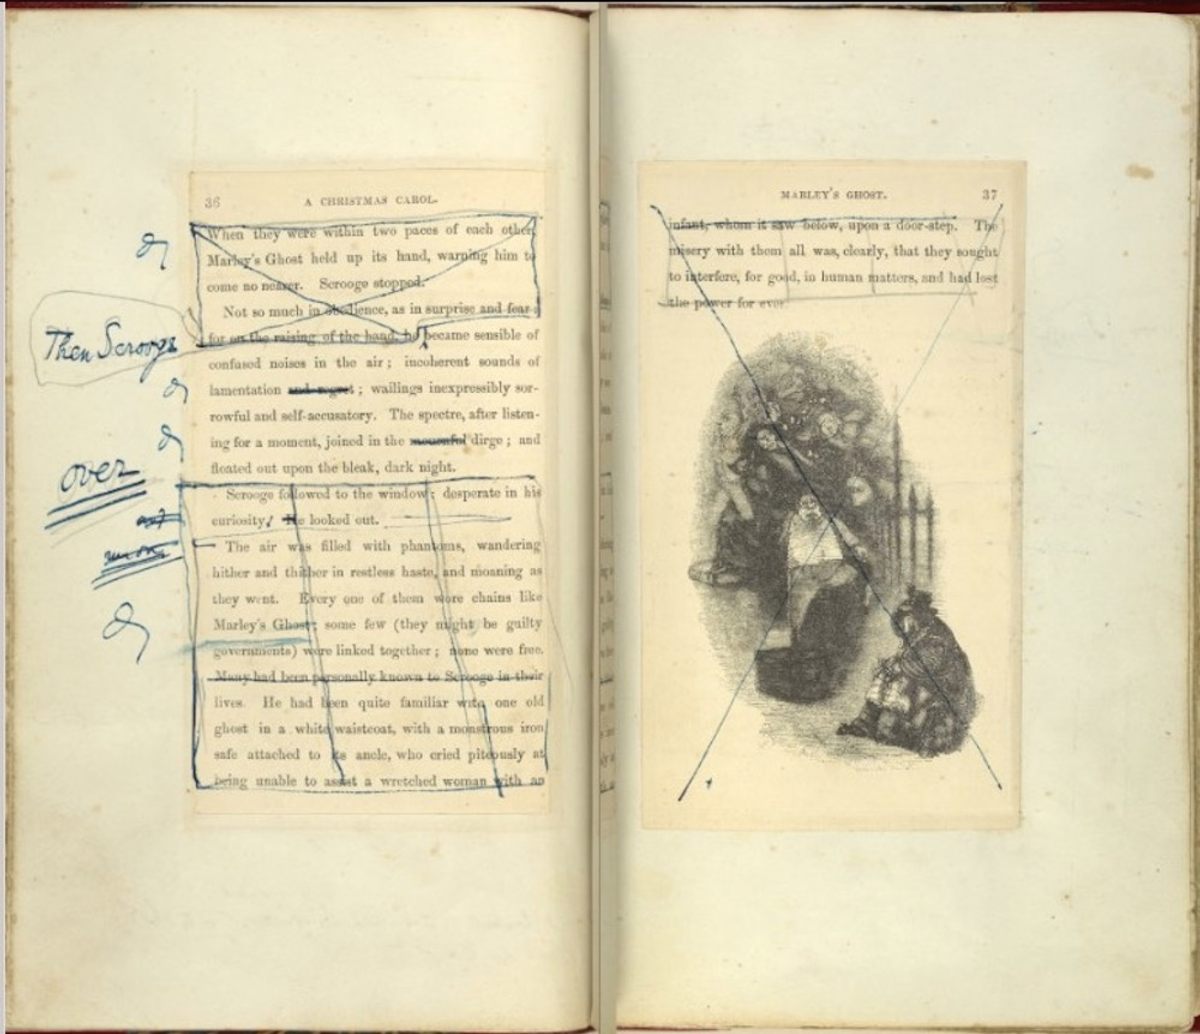 36 A CHRISTMAS CAROL.
When they were within two paces of each other,
Marley's Ghost held up its hand, warning him to
come no nearer. Scrooge stopped.
Not so much in obedience, as in surprise and fear:
for on the raising of the hand, he became sensible of
Then Scrooge
confused noises in the air; incoherent sounds of
lamentation and regret; wailings inexpressibly sor-
rowful and self-accusatory. The spectre, after listen-
ing for a moment, joined in the mournful dirge; and
floated out upon the bleak, dark night.
over
Scrooge followed to the window: desperate in his
curiosity. He looked out.
The air was filled with phantoms, wandering
hither and thither in restless haste, and moaning as
they went. Every one of them wore chains like
Marley's Ghost; some few (they might be guilty
governments) were linked together; none were free.
Many had been personally known to Scrooge in their
lives. He had been quite familiar with one old
ghost in a white waistcoat, with a monstrous iron
safe attached to its ancle, who cried piteously at
being unable to assist a wretched woman with an
MARLEY'S GHOST. 37
infant, whom it saw below, upon a door-step. The
misery with them all was, clearly, that they sought
to interfere, for good, in human matters, and had lost
the power for ever.